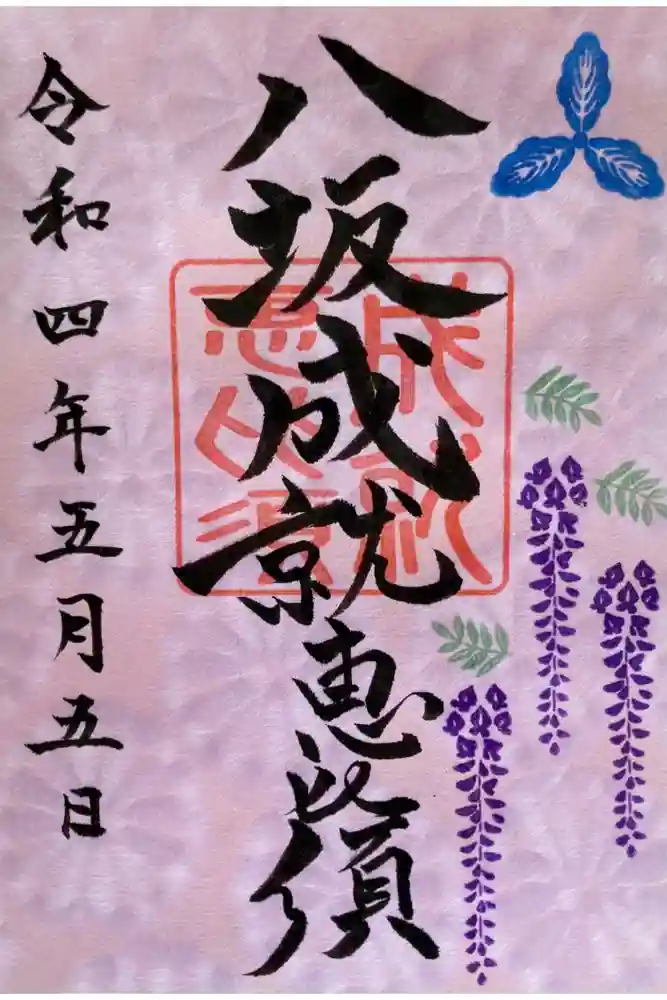 八坂成就恵比須
成就
恵比須
令和四年五月五日